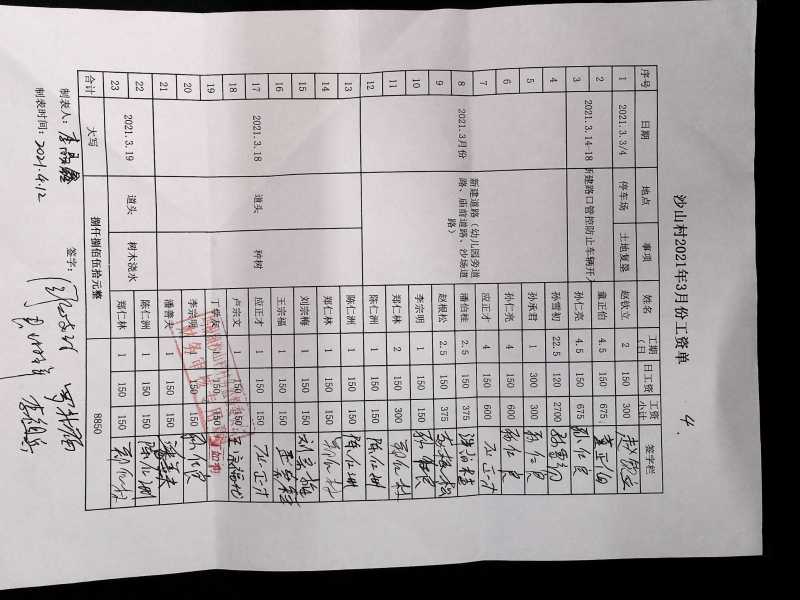 沙山村2021年3月份工资单
4.
序号 日期 地点 事项 姓名 工期（日 日工资 工资小计 签字栏
1 2021.3.3/4 停车场 土地复垦 赵钦立 2 150 300 赵钦立
2 2021.3.14-18 新建路口管控防止车辆开入 童正伯 4.5 150 675 童正伯
3 孙仁亮 4.5 150 675 孙仁良
4 2021.3月份 新建道路（幼儿园旁道路、庙前道路、沙场道路） 孙雪初 22.5 120 2700 孙雪初
5 孙承君 1 300 300 孙仁良
6 孙仁亮 4 150 600 孙仁良
7 应正才 4 150 600 应正才
8 潘伯桂 2.5 150 375 潘伯桂
9 赵根松 2.5 150 375 赵根松
10 李宗明 1 150 150
11 郑仁林 2 150 300 郑仁林
12 陈仁洲 1 150 150 陈仁洲
13 2021.3.18 道头 种树 陈仁洲 1 150 150 陈仁洲
14 郑仁林 1 150 150 郑仁林
15 刘宗梅 1 150 150 刘宗梅
16 王宗福 1 150 150
17 应正才 1 150 150 应正才
18 卢宗文 1 150 150
19 1 150 150
20 李宗明 1 150 150 孙仁良
21 潘善夫 1 150 150 潘善夫
22 2021.3.19 道头 树木浇水 陈仁洲 1 150 150 陈仁洲
23 郑仁林 1 150 150 郑仁林
合计 大写 捌仟捌佰伍拾元整 8850
制表人： 签字：
制表时间：2021.4.12